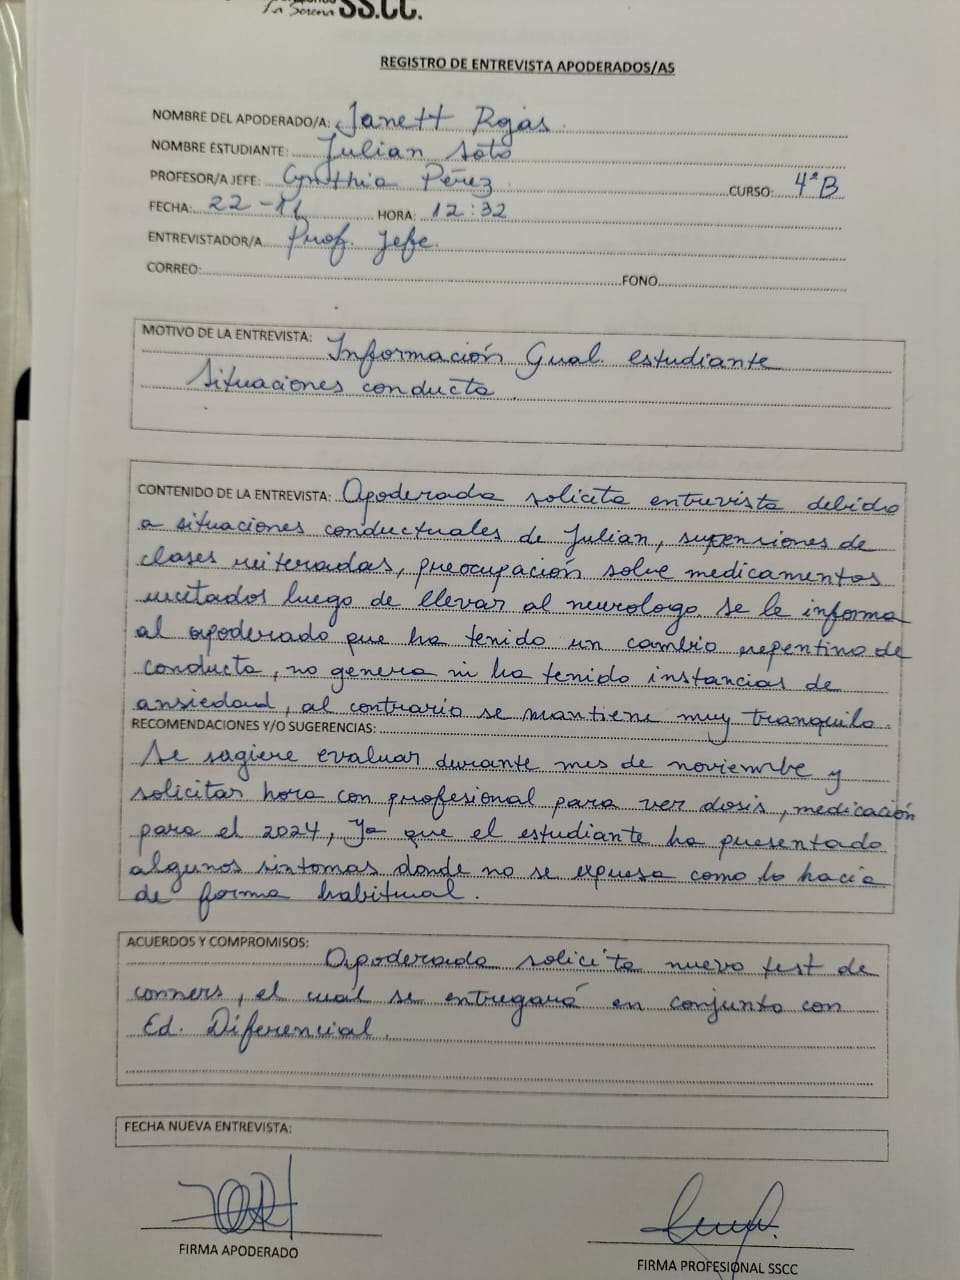 La Serena SS.CC.
REGISTRO DE ENTREVISTA APODERADOS/AS
NOMBRE DEL APODERADO/A: Janett Rojas
NOMBRE ESTUDIANTE: Julian Soto
PROFESOR/A JEFE: Cynthia Pérez CURSO: 4°B
FECHA: 22-11 HORA: 12:32
ENTREVISTADOR/A Prof. Jefe.
CORREO: FONO
MOTIVO DE LA ENTREVISTA: Información Gral. estudiante
Situaciones conducta
CONTENIDO DE LA ENTREVISTA: Apoderada solicita entrevista debido
a situaciones conductuales de Julian, supensiones de
clases reiteradas, preocupación sobre medicamentos
recetados luego de llevar al neurologo. Se le informa
al apoderado que ha tenido un cambio repentino de
conducta, no genera ni ha tenido instancias de
ansiedad, al contrario se mantiene muy tranquilo.
RECOMENDACIONES Y/O SUGERENCIAS:
Se sugiere evaluar durante mes de noviembre y
solicitar hora con profesional para ver dosis, medicación
para el 2024, Ya que el estudiante ha presentado
algunos sintomas donde no se expresa como lo hacia
de forma habitual.
ACUERDOS Y COMPROMISOS:
Apoderada solicita nuevo test de
conners, el cual se entregará en conjunto con
Ed. Diferencial.
FECHA NUEVA ENTREVISTA:
FIRMA APODERADO
FIRMA PROFESIONAL SSCC